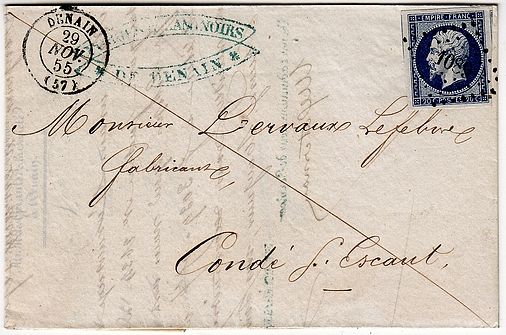 DENAIN
29
NOV.
55
(57)
NOIRS
* DE DENAIN *
EMPIRE FRANC.
20 C. 20 C.
Monsieur Dervaux Lefebvre
fabricant,
Condé s. Escaut.